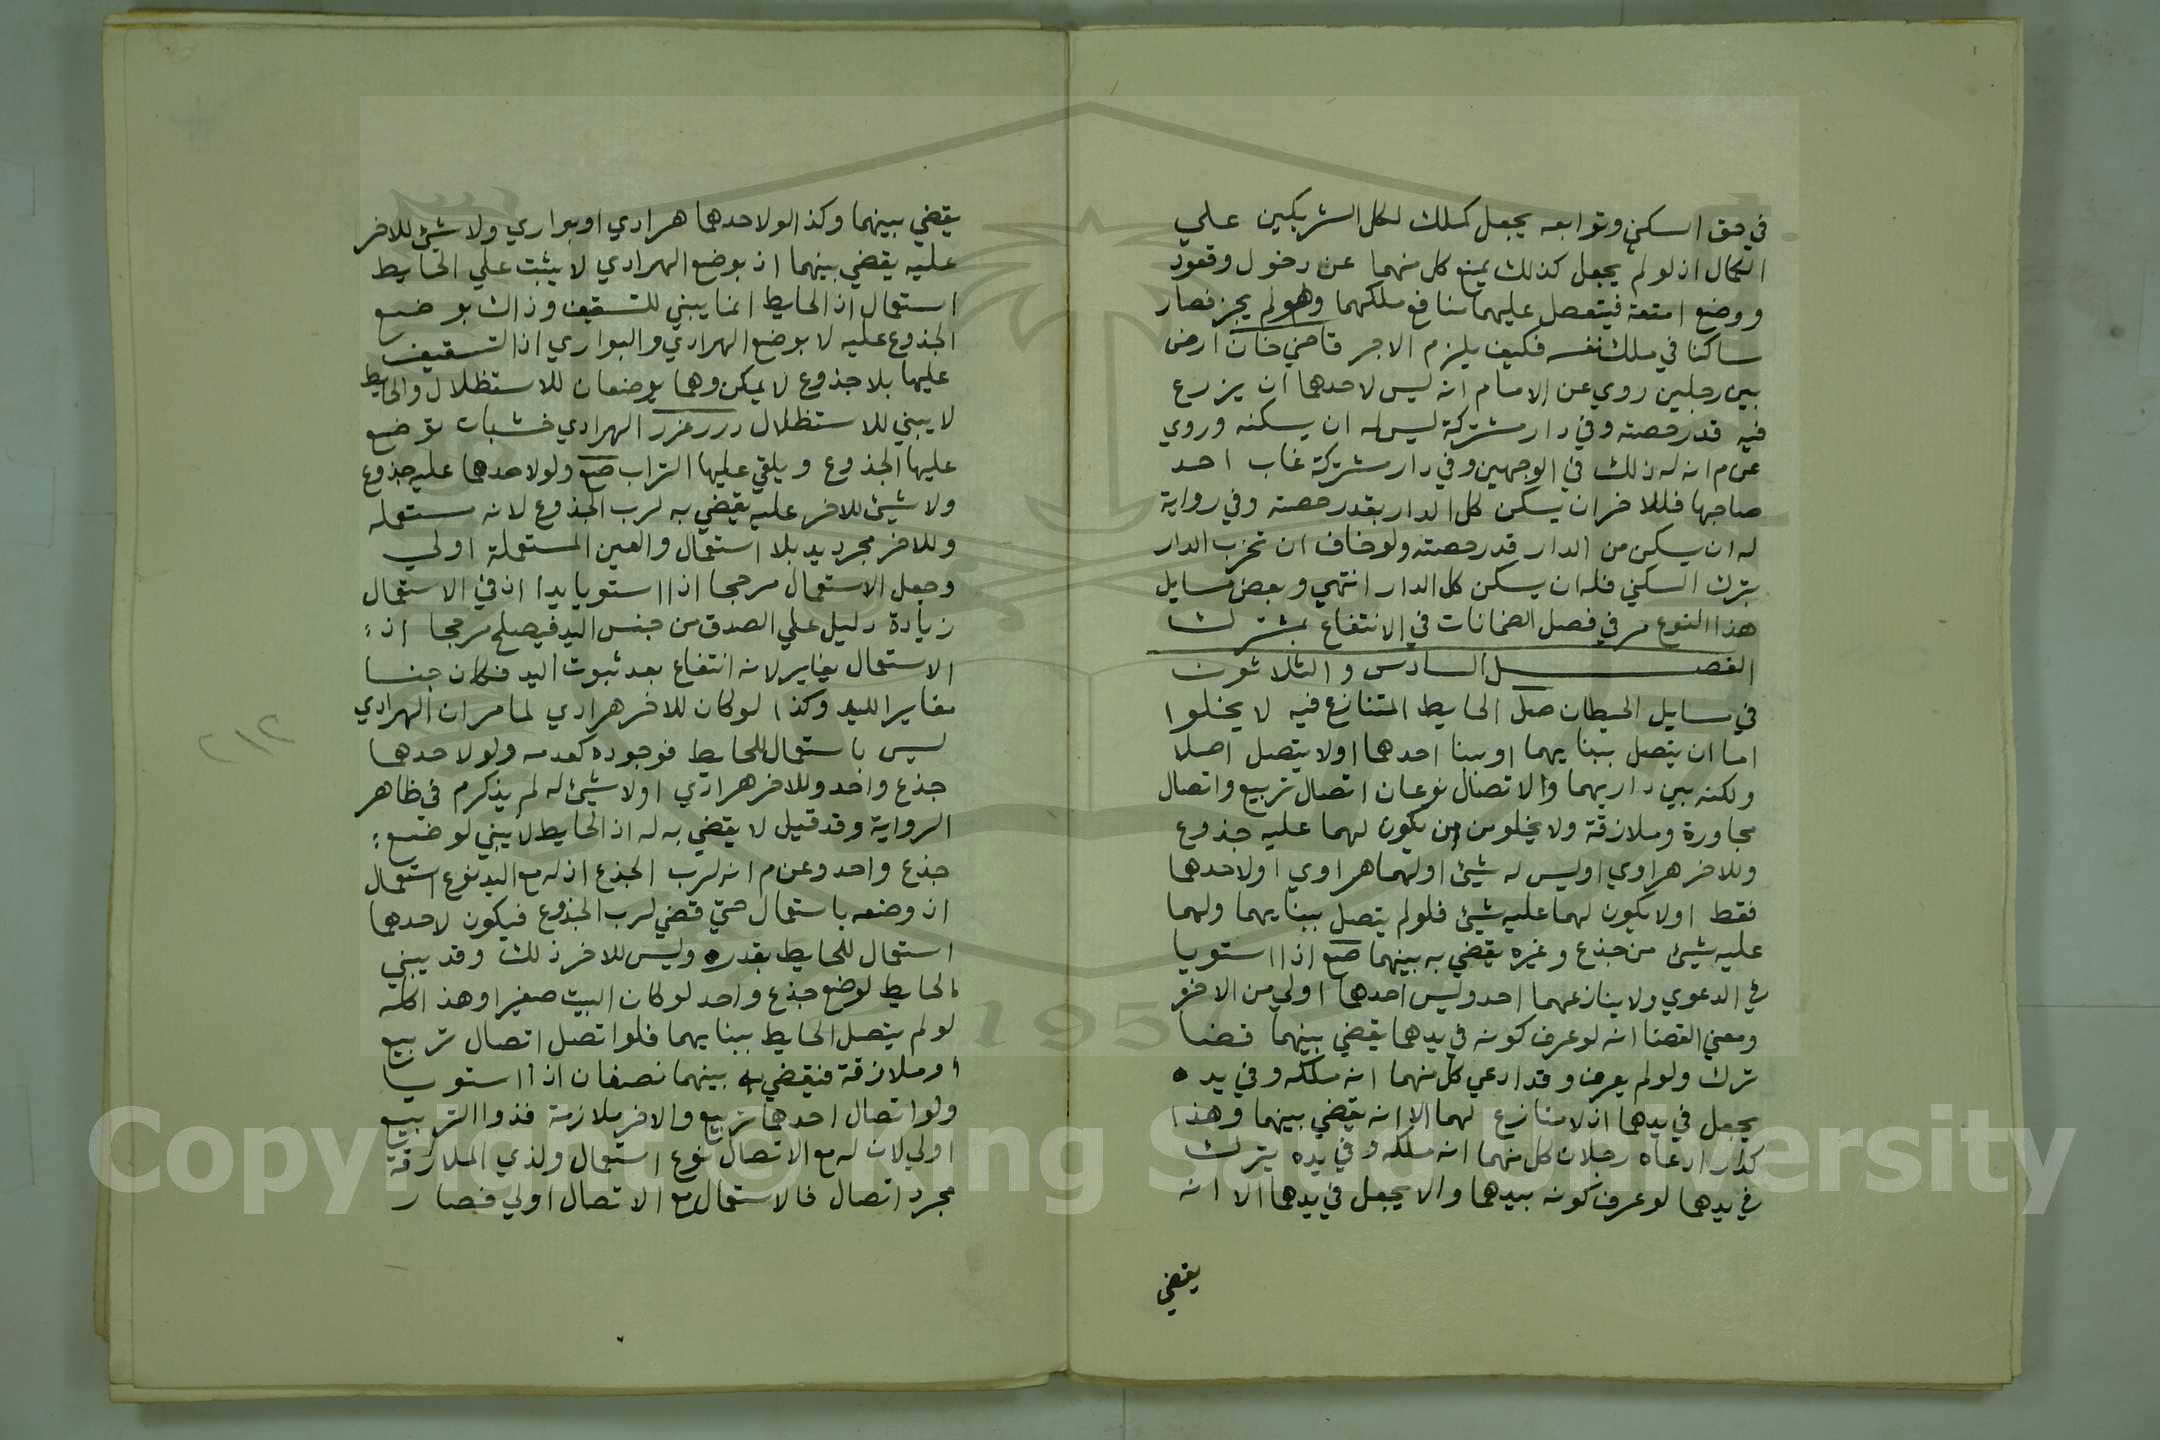 في حق السكني وتوابعه يجعل كملك لكل الشريكين علي
الكمال اذ لو لم يجعل كذلك يمنع كل منهما عن دخول وقعود
ووضع امتعة فيتعطل عليهما منافع ملكهما وهو لم يجز فصار
ساكنا في ملك نفسه فكيف يلزم الاجر قاضي خان ارض
بين رجلين روي عن الامام انه ليس لاحدهما ان يزرع
فيه قدر حصته وفي دار مشتركة ليس له ان يسكنه وروي
عن م انه له ذلك في الوجهين وفي دار مشتركة غاب احد
صاحبها فللاخر ان يسكن كل الدار بقدر حصته وفي رواية
له ان يسكن من الدار قدر حصته ولو خاف ان تخرب الدار
بترك السكني فله ان يسكن كل الدار انتهي وبعض مسايل
هذا النوع مر في فصل الضمانات في الانتفاع بمشترك
الفصل السادس والثلاثون
في مسايل الحيطان صل الحايط المتنازع فيه لا يخلوا
اما ان يتصل ببنايهما او ببنا احدهما اولا يتصل اصلا
ولكنه بين داريهما والاتصال نوعان اتصال تربيع واتصال
مجاورة وملازقة ولا يخلو من ان يكون لهما عليه جذوع
وللاخر هراوي اوليس له شيئ اولهما هراوي اولاحدهما
فقط اولا يكون لهما عليه شيئ فلو لم يتصل ببنايهما ولهما
عليه شيئ من جذع وغيره يقضي به بينهما صع اذا استويا
في الدعوي ولا ينازعهما احد وليس احدهما اولي من الاخر
ومعني القضا انه لو عرف كونه في يدهما يقضي بينهما قضا
ترك ولو لم يعرف وقد ادعي كل منهما انه ملكه وفي يده
يجعل في يدهما اذ لا منازع لهما الا انه يقضي بينهما وهذا
كدار ادعاه رجلان كل منهما انه ملكه وفي يده يترك
في يدهما لو عرف كونه بيدهما والا يجعل في يدهما الا انه
يقضي
يقضي بينهما وكذا لو لاحدهما هرادي او بواري ولا شيئ للاخر
عليه يقضي بينهما اذ بوضع الهرادي لا يثبت علي الحايط
استعمال اذ الحايط انما يبني للتسقيف وذاك بوضع
الجذوع عليه لا بوضع الهرادي والبواري اذ التسقيف
عليها بلا جذوع لا يمكن وهما يوضعان للاستظلال والحايط
لا يبني للاستظلال درر غرر الهرادي خشبات توضع
عليها الجذوع ويلقي عليها التراب صع ولو لاحدهما عليه جذوع
ولا شيئ للاخر عليه يقضي به لرب الجذوع لانه مستعمله
وللاخر مجرد يد بلا استعمال والعين المستعملة اولي
وجعل الاستعمال مرجحا اذا استويا يدا اذ في الاستعمال
زيادة دليل علي الصدق من جنس اليد فيصلح مرجحا اذ
الاستعمال يغاير لانه انتفاع بعد ثبوت اليد فكان جنسا
مغاير اليد وكذا لو كان للاخر هرادي لما مر ان الهرادي
ليس باستعمال للحايط فوجوده كعدمه ولو لاحدهما
جذع واحد وللاخر هرادي اولا شيئ له لم يذكر م في ظاهر
الرواية وقد قيل لا يقضي به له اذ الحايط لا يبني لوضع
جذع واحد وعن م انه لرب الجذع اذ له مع اليد نوع استعمال
اذ وضعه باستعمال حتي قضي لرب الجذوع فيكون لاحدهما
استعمال للحايط بقدره وليس للاخر ذلك وقد يبني
الحايط لوضع جذع واحد لو كان البيت صغيرا وهذا كله
لو لم يتصل الحايط ببنايهما فلو اتصل اتصال تربيع
او ملازقة فيقضي به بينهما نصفان اذا استويا
ولو اتصال احدهما تربيع والاخر ملازمة فذوا التربيع
اولي لان له مع الاتصال نوع استعمال ولذي الملازقة
مجرد اتصال فالاستعمال مع الاتصال اولي فصار
٢١٢
Copyright © King Saud University
1957